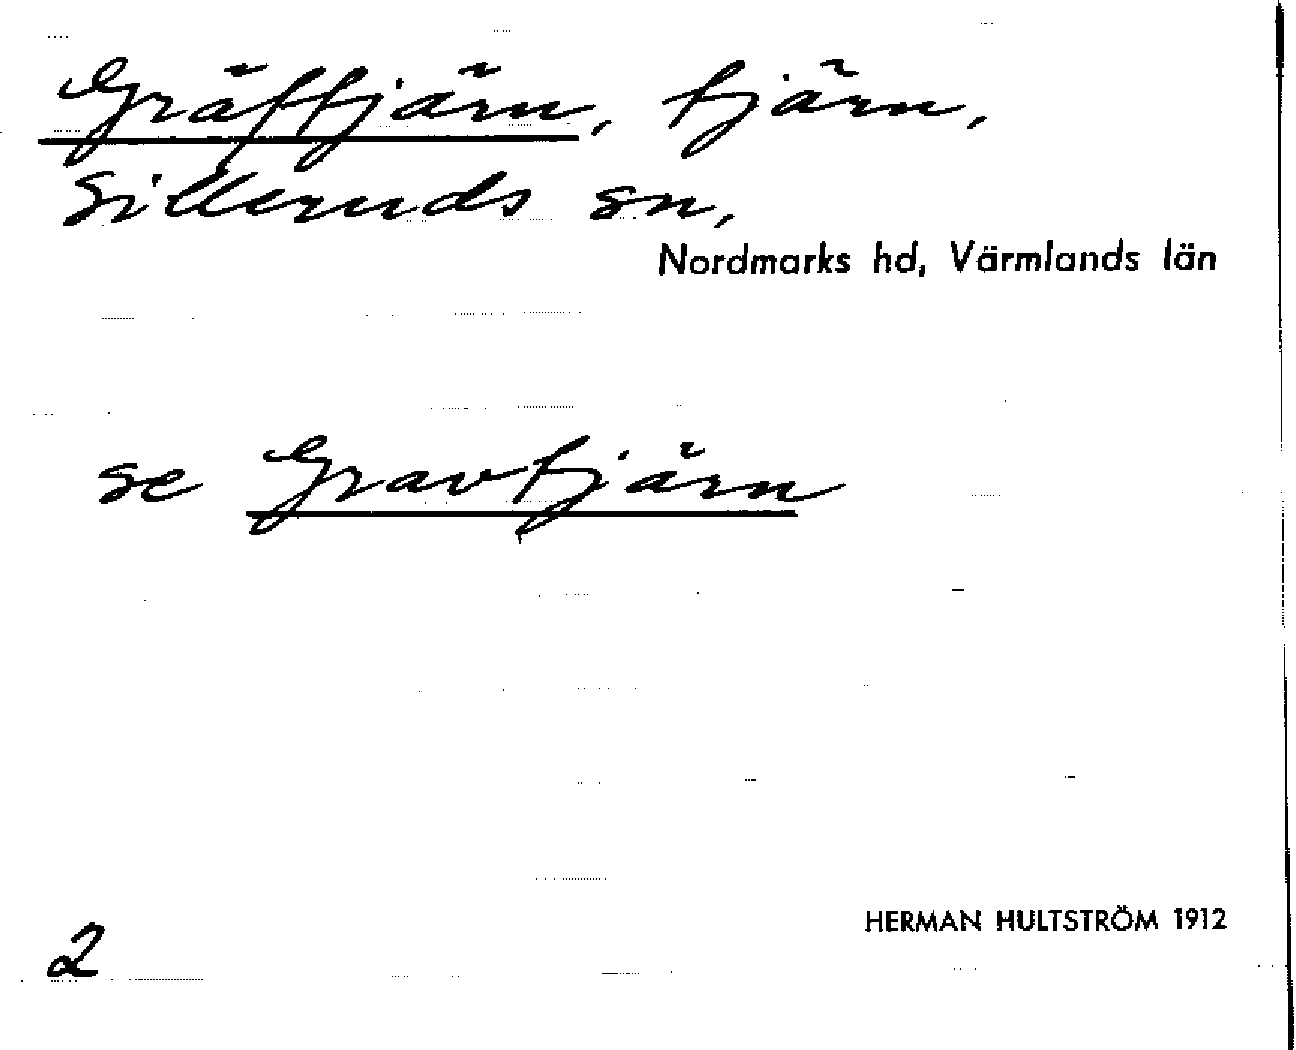 Gräftjärn, tjärn,
Silleruds sn,
Nordmarks hd, Värmlands län
se Gravtjärn
HERMAN HULTSTRÖM 1912
2